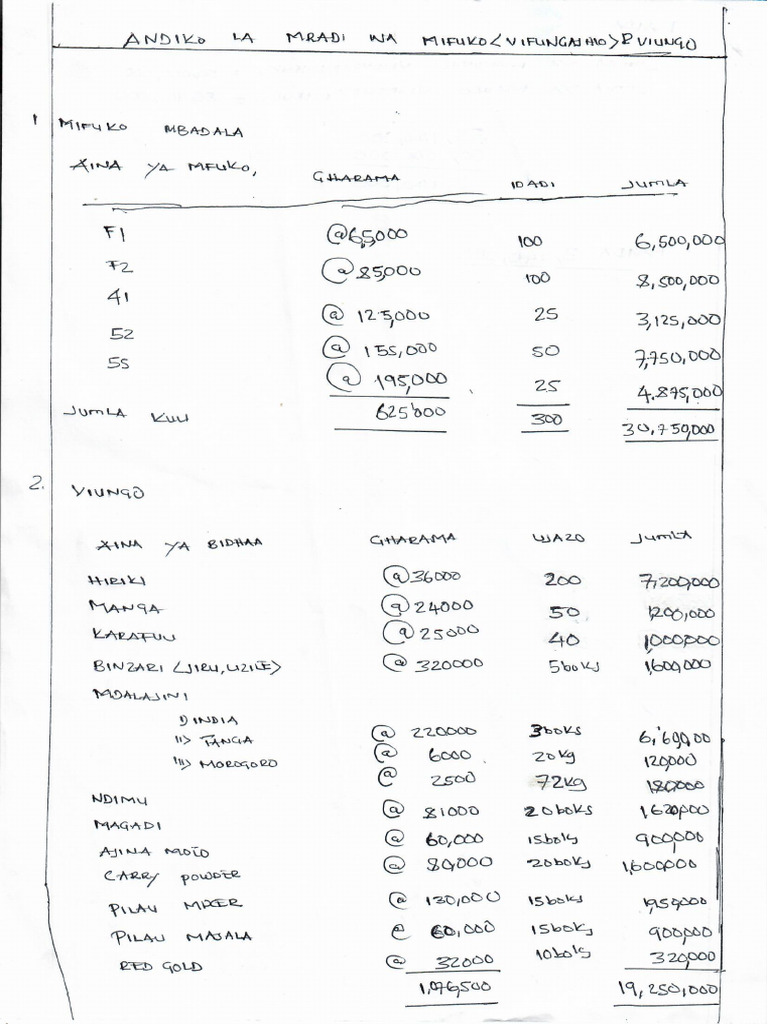 ANDIKO LA MRADI WA MIFUKO <VIFUNGASHIO> & VIUNGO
1 MIFUKO MBADALA
AINA YA MFUKO, GHARAMA IDADI JUMLA
F1 @65,000 100 6,500,000
F2 @85,000 100 8,500,000
41 @ 125,000 25 3,125,000
52 @ 155,000 50 7,750,000
55 @ 195,000 25 4,875,000
JUMLA KUU 625000 300 30,750,000
2. VIUNGO
AINA YA BIDHAA GHARAMA UJAZO JUMLA
HIRIKI @36000 200 7,200,000
MANGA @24000 50 1,200,000
KARAFUU @25000 40 1,000,000
BINZARI <JIRU, UZILE> @ 320000 5boks 1,600,000
MDALASINI
I) INDIA @ 220000 3boks
II) TANGA @ 6000 20kg 120,000
III) MOROGORO @ 2500 72kg 180,000
NDIMU @ 81000 20boks 1,620,000
MAGADI @ 60,000 15boks 900,000
AJINA MOTO @ 80,000 20boks 1,600,000
CARRY POWDER @ 130,000 15boks 1,950,000
PILAU MIXER @ 60,000 15boks 900,000
PILAU MASALA @ 32000 10boks 320,000
RED GOLD
1,076,500 19,250,000